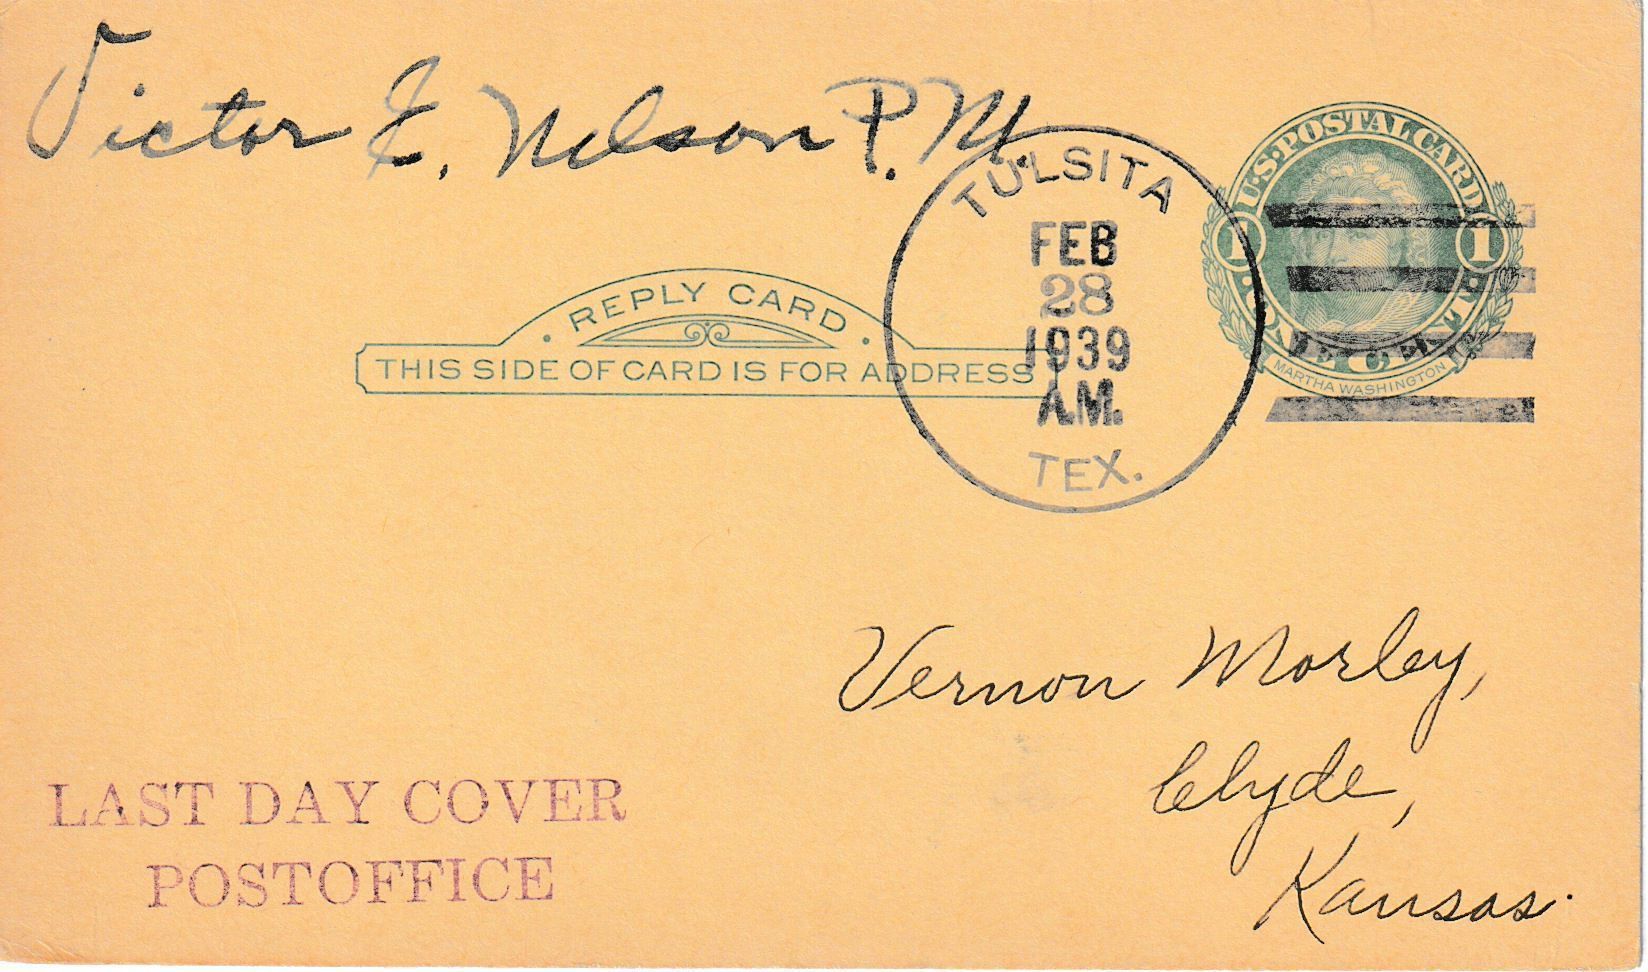 Victor E. Nelson P.M.
U.S. POSTAL CARD
1 1
ONE CENT
MARTHA WASHINGTON
TULSITA
FEB
28
1939
A.M.
TEX.
REPLY CARD
THIS SIDE OF CARD IS FOR ADDRESS
Vernon Morley,
Clyde,
Kansas.
LAST DAY COVER
POSTOFFICE